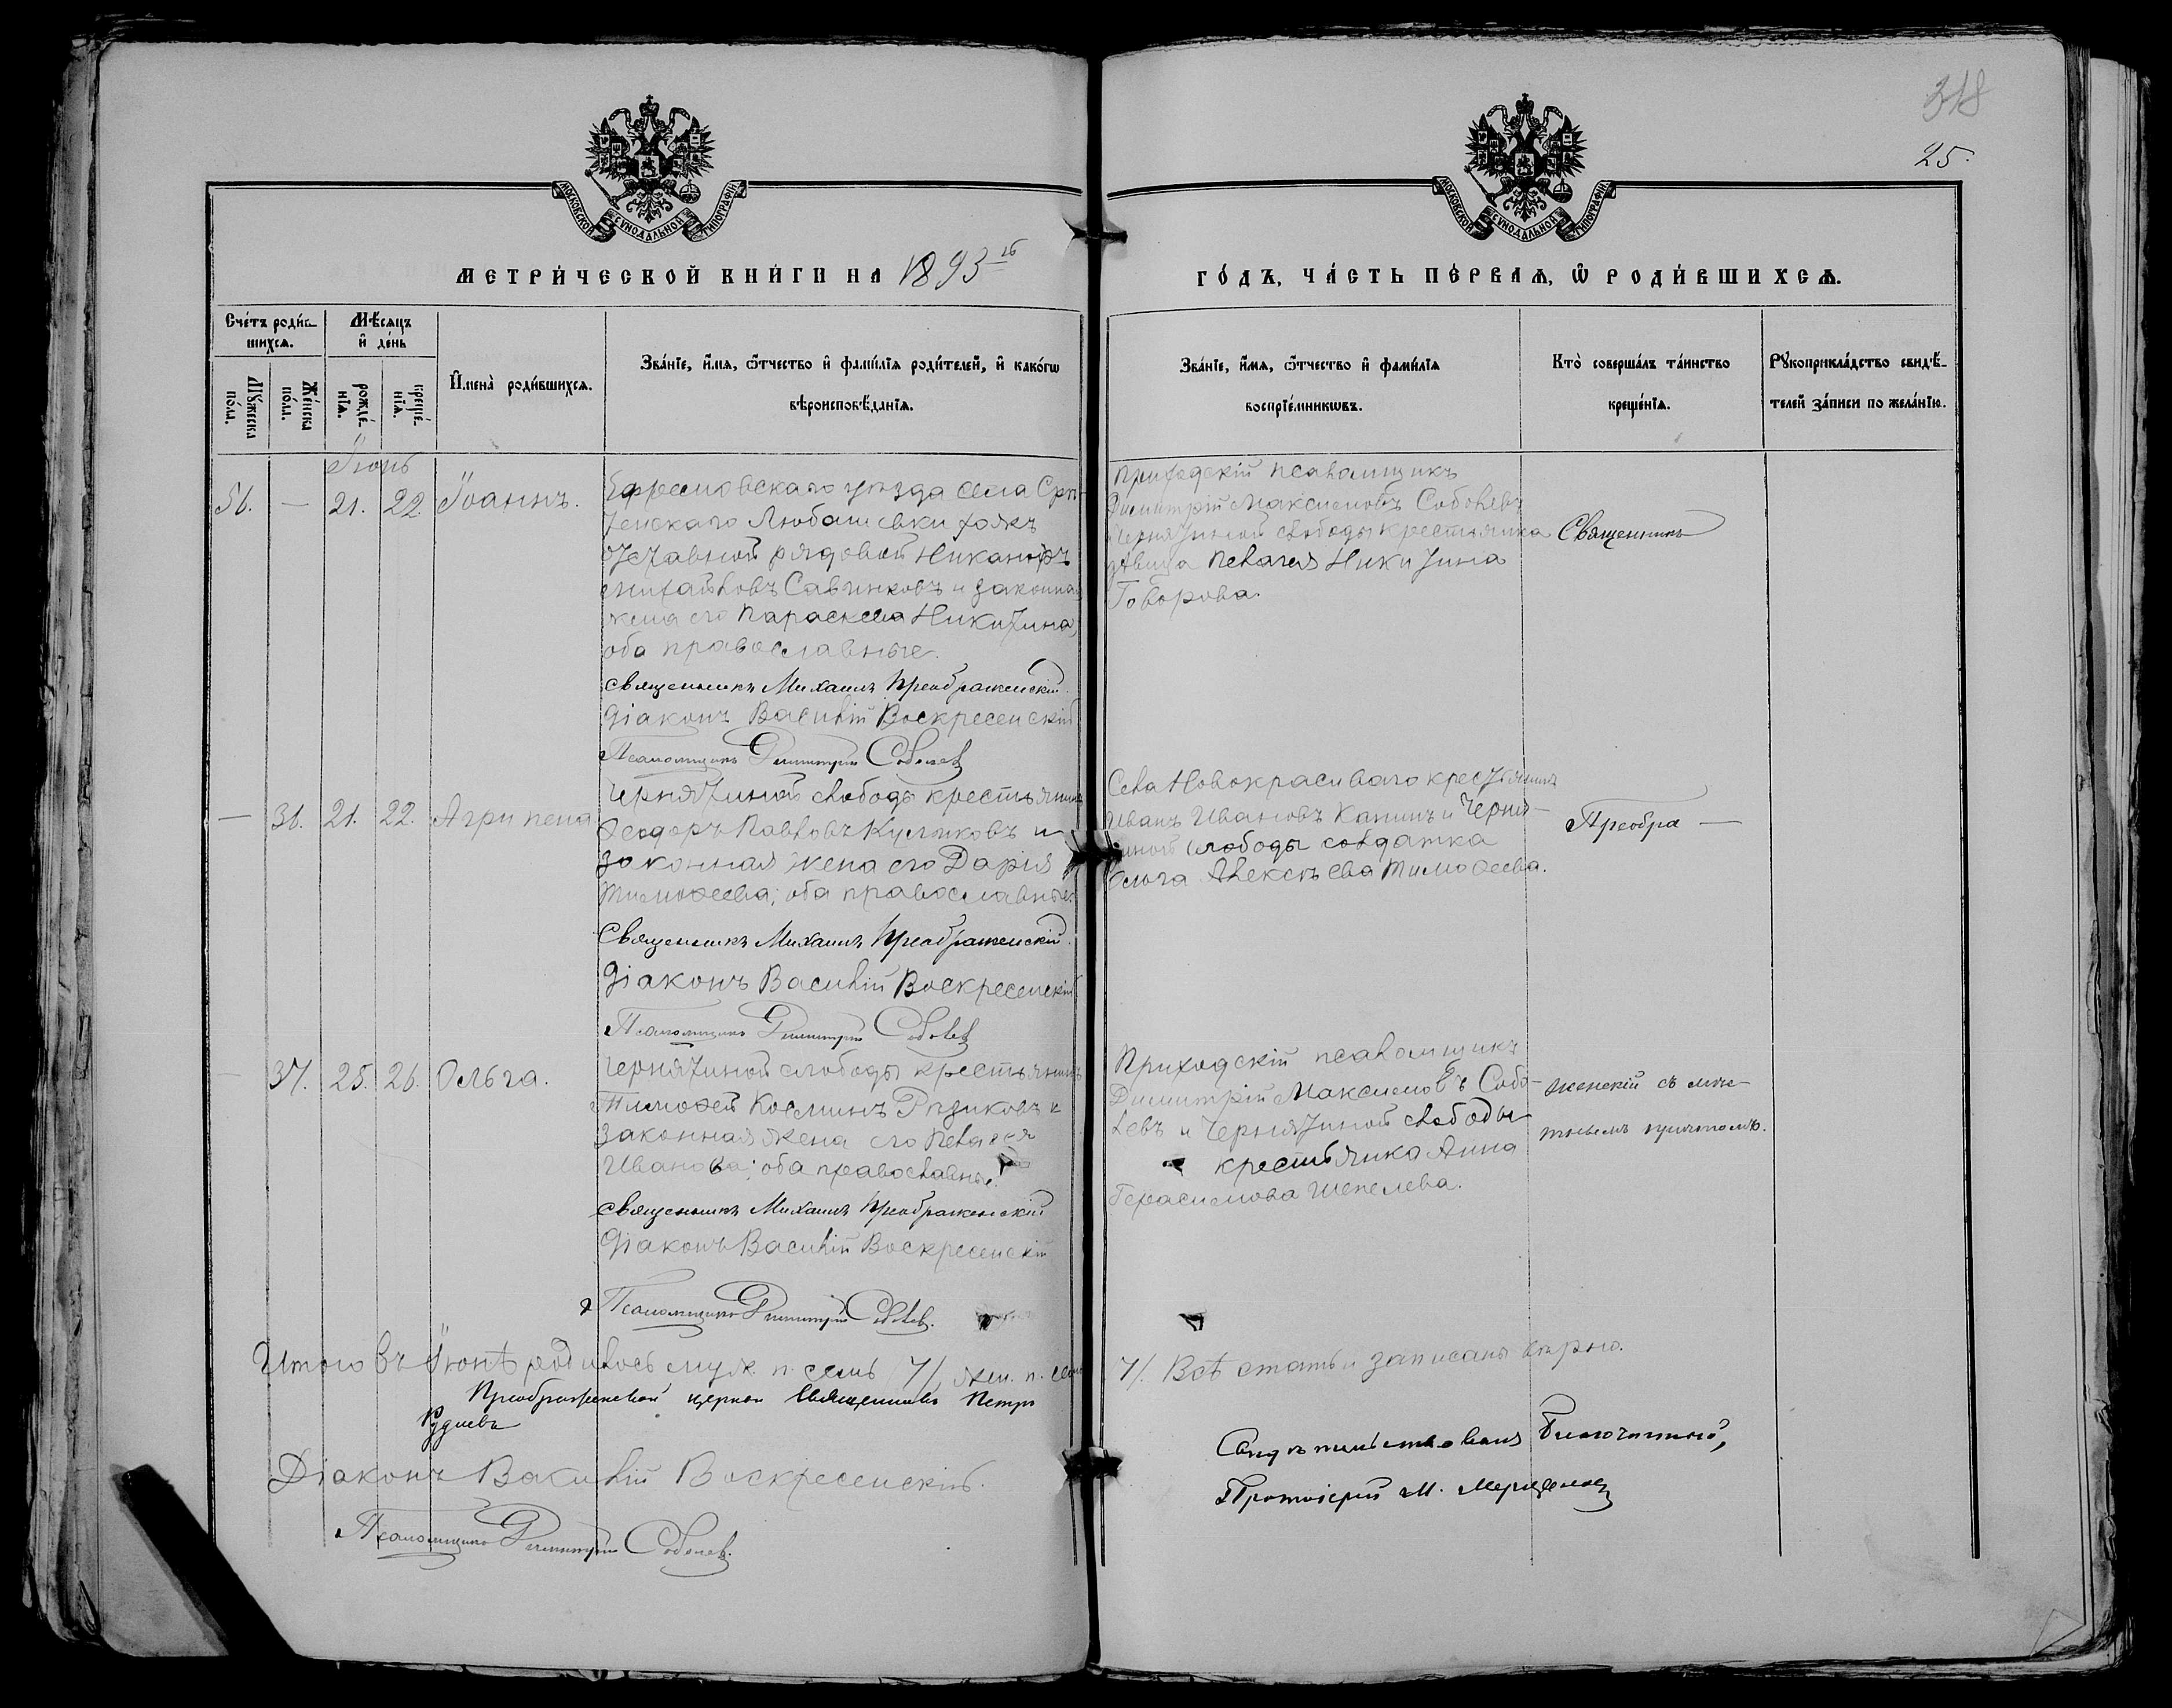 318
25.
МОСКОВСКОЙ СѴНОДАЛЬНОЙ ТИПОГРАФІИ
МОСКОВСКОЙ СѴНОДАЛЬНОЙ ТИПОГРАФІИ
МЕТРИ́ЧЕСКОЙ КНИ́ГИ НА 1893й
ГО́ДЪ, ЧА́СТЬ ПЕ́РВАЯ, Ѡ РОДИ́ВШИХСЯ.
Сче́тъ роди́в-
шихся.
Мꙋ́жеска
по́ла.
Же́нска
по́ла.
Мѣ́сяцъ
и де́нь
рожде́-
нїя.
креще́-
нїя.
Имена̀ роди́вшихся.
Зва́нїе, и́мя, ѻ҆́тчество и фами́лїя роди́телей, и како́гѡ
вѣроисповѣ́данїя.
Зва́нїе, и́мя, ѻ҆́тчество и фами́лїя
воспрїе́мниковъ.
Кто̀ соверша́лъ та́инство
креще́нїя.
Рꙋкоприкла́дство свидѣ́-
телей за́писи по жела́нїю.
Іюнь
56. — 21. 22. Іоаннъ.
Ефремовскаго уѣзда села Срѣ-
тенскаго Любашевки тожъ
отставной рядовой Никаноръ
Михайловъ Савинковъ и законная
жена его Параскева Никитина,
оба православные.
Священникъ Михаилъ Преображенскій.
Діаконъ Василій Воскресенскій
Псаломщикъ Димитрій Соболев
Приходскій псаломщикъ
Димитрій Максимовъ Соболевъ
Чернятиной слободы крестьянка
дѣвица Пелагея Никитина
Говорова.
Священникъ
— 36. 21. 22. Агрипена
Чернятиной слободы крестьянинъ
Ѳеодоръ Павловъ Куликовъ и
законная жена его Дарія
Тимоѳеева; оба православные.
Священникъ Михаилъ Преображенскій.
Діаконъ Василій Воскресенскій
Псаломщикъ Димитрій Соболев
Села Новокрасиваго крестьянинъ
Иванъ Ивановъ Капинъ и Черня-
тиной слободы солдатка
Ольга Алексѣева Тимоѳеева.
Преобра —
— 37. 25. 26. Ольга.
Чернятиной слободы крестьянинъ
Тимоѳей Косминъ Рѣзиковъ и
законная жена его Пелагея
Иванова; оба православные.
Священникъ Михаилъ Преображенскій
Діаконъ Василій Воскресенскій
Псаломщикъ Димитрій Соболев.
Приходскій псаломщикъ
Димитрій Максимовъ Собо-
левъ и Чернятиной слободы
крестьянка Анна
Герасимова Шепелева.
женскій съ мѣс-
тнымъ причтомъ.
Итого въ Іюнѣ родилось муж. п. семь /7/, жен. п. семь
/7/. Всѣ статьи записаны вѣрно.
Преображенской церкви Священникъ Петръ
Рудневъ
Діаконъ Василій Воскресенскій.
Псаломщикъ Димитрій Соболев.
Свидѣтельствовалъ Благочинный,
Протоіерей М.